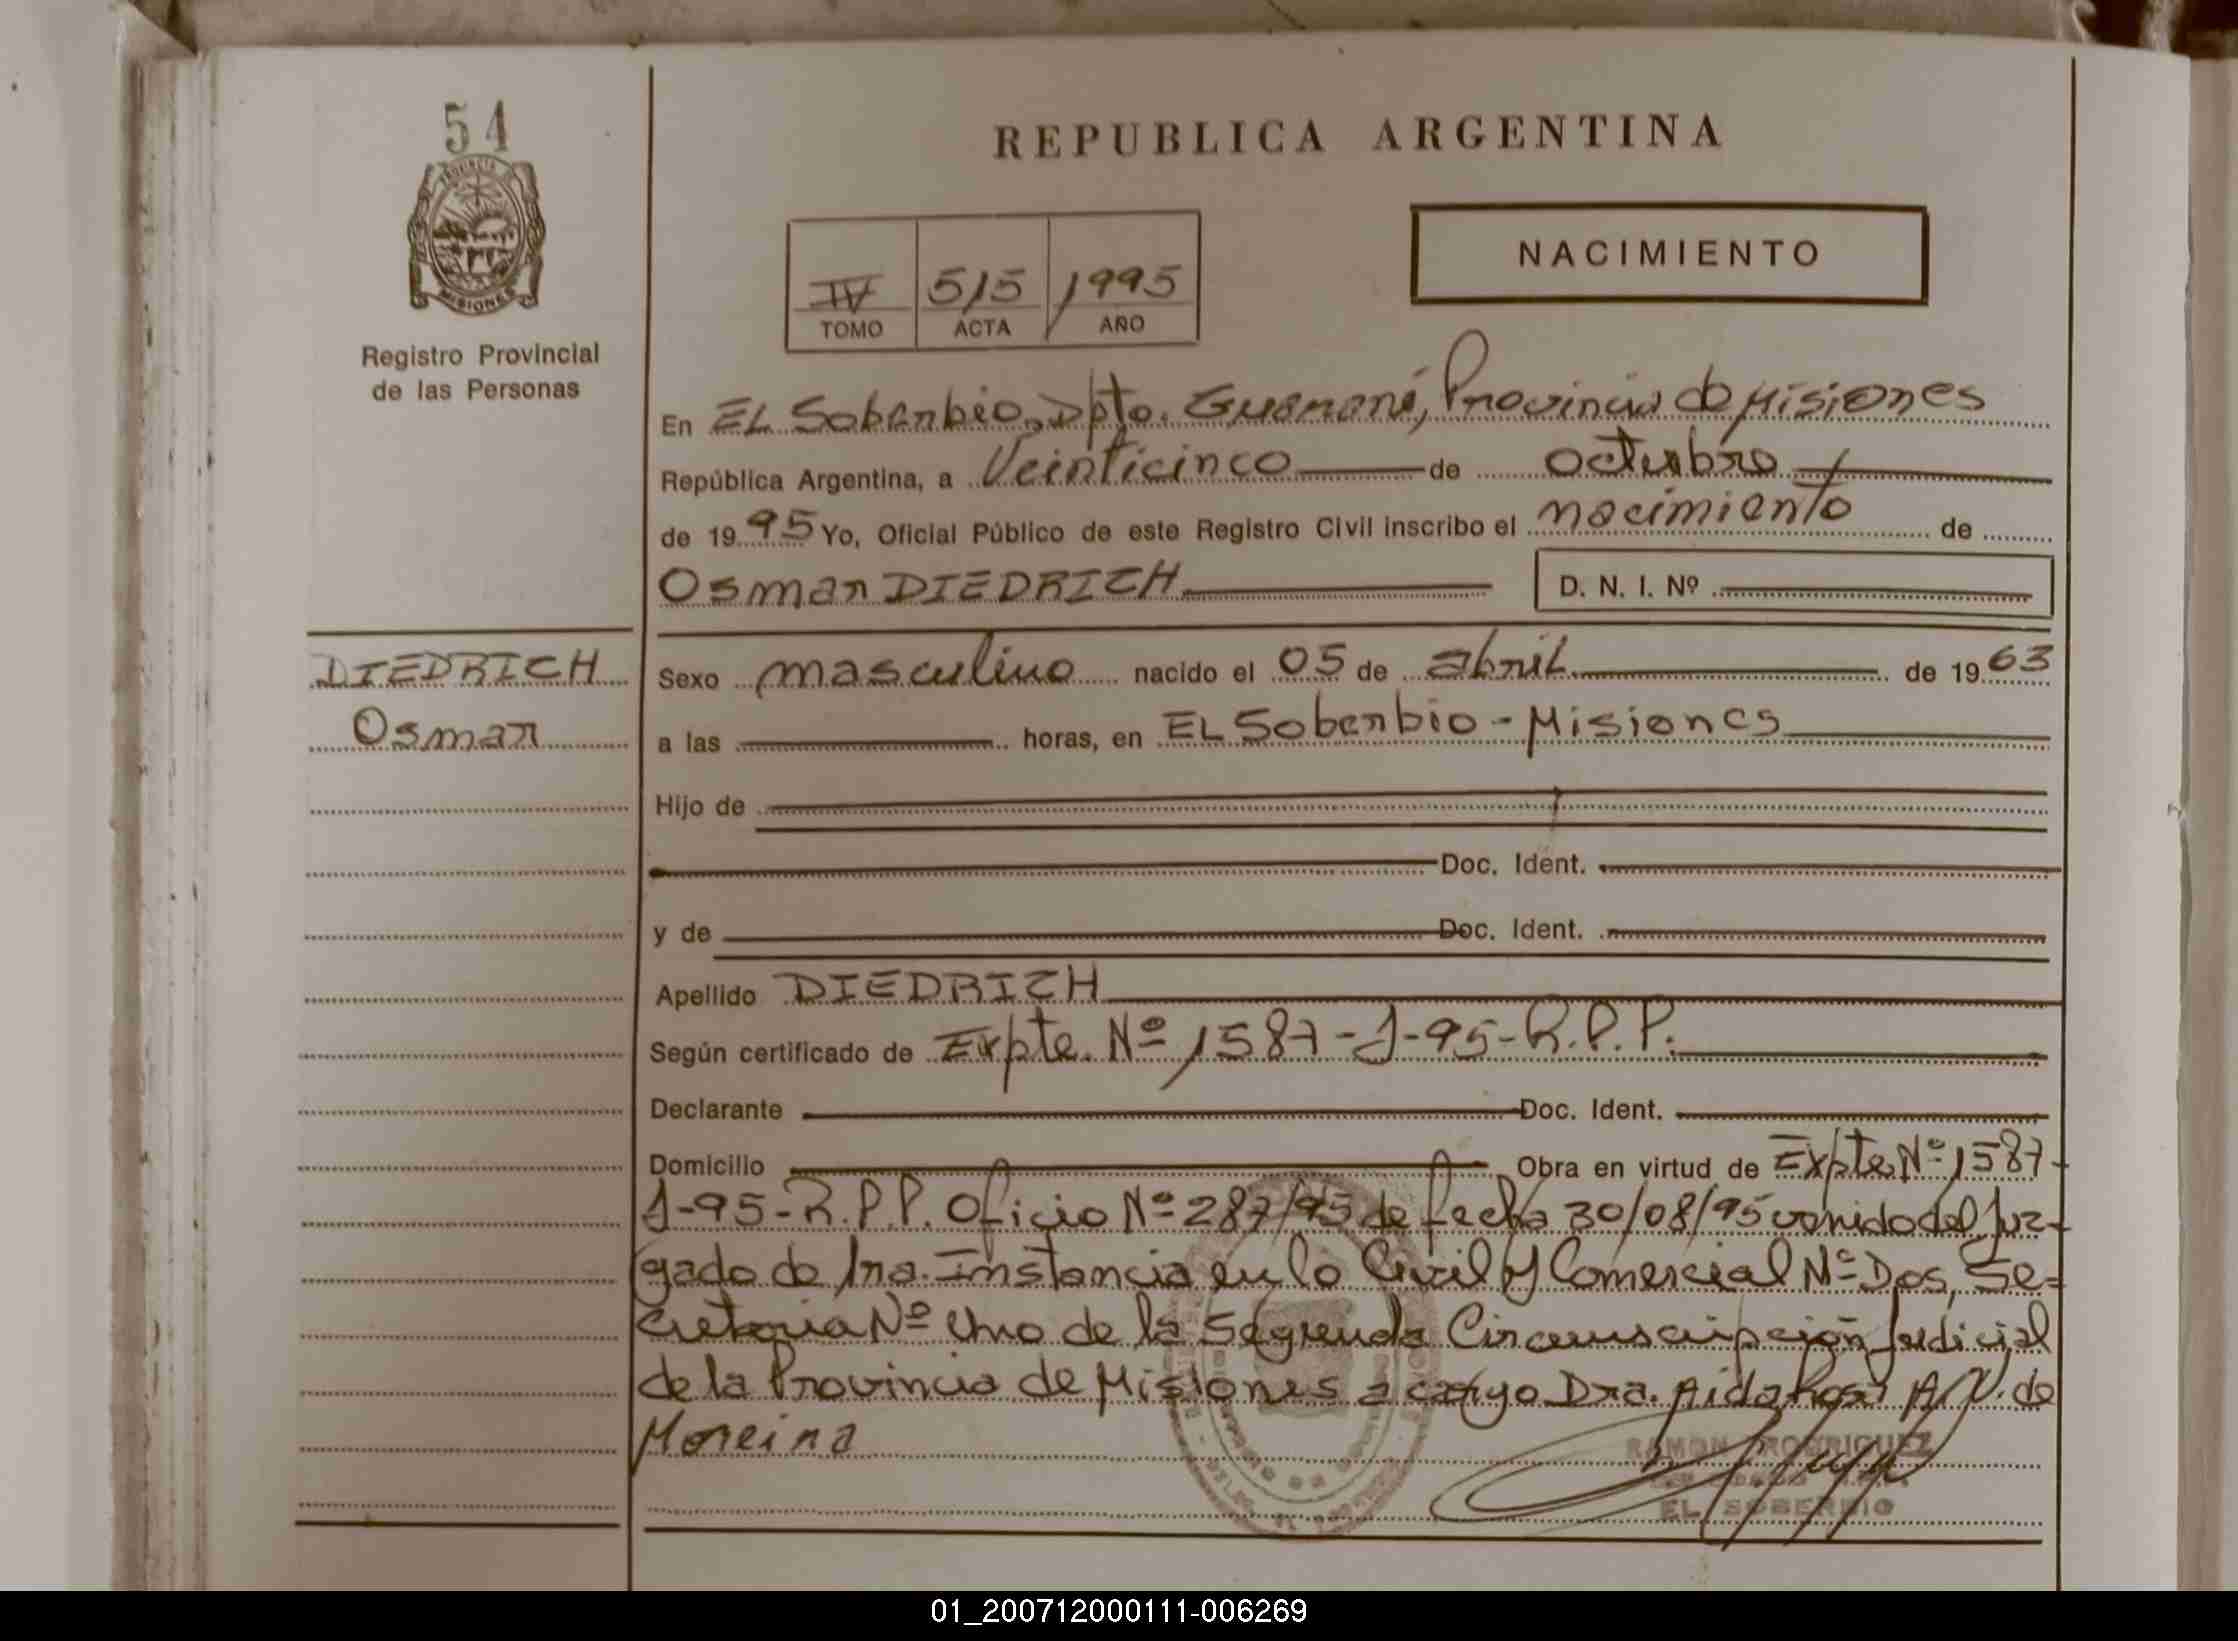 54
PROVINCIA DE
MISIONES
Registro Provincial
de las Personas
REPUBLICA ARGENTINA
NACIMIENTO
IV 515 1995
TOMO ACTA AÑO
En EL Soberbio, Dpto. Guaraní, Provincia de Misiones
República Argentina, a Veinticinco de octubre
de 1995 Yo, Oficial Público de este Registro Civil inscribo el nacimiento de
Osmar DIEDRICH D. N. I. Nº
DIEDRICH
Osmar
Sexo masculino nacido el 05 de abril de 1963
a las horas, en EL Soberbio - Misiones
Hijo de
Doc. Ident.
y de Doc. Ident.
Apellido DIEDRICH
Según certificado de Expte. Nº 1587-J-95-R.P.P.
Declarante Doc. Ident.
Domicilio Obra en virtud de Expte Nº 1587-
J-95-R.P.P. Oficio Nº 287/95 de fecha 30/08/95 venido del Juz-
gado de 1ra. Instancia en lo Civil y Comercial Nº Dos, Se-
cretaria Nº Uno de la Segunda Circunscripción Judicial
de la Provincia de Misiones a cargo Dra. Aida Rosa A. V. de
Moreira
RAMON RODRIGUEZ
EL SOBERBIO
01_200712000111-006269